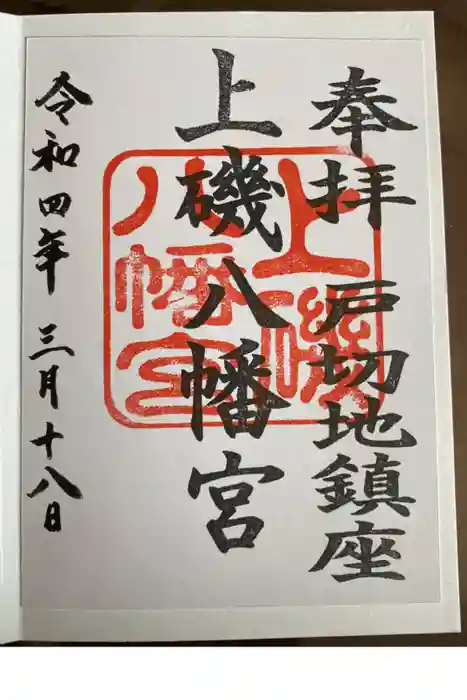 奉拝 戸切地鎮座
上磯八幡宮
上磯八幡宮
令和四年 三月十八日